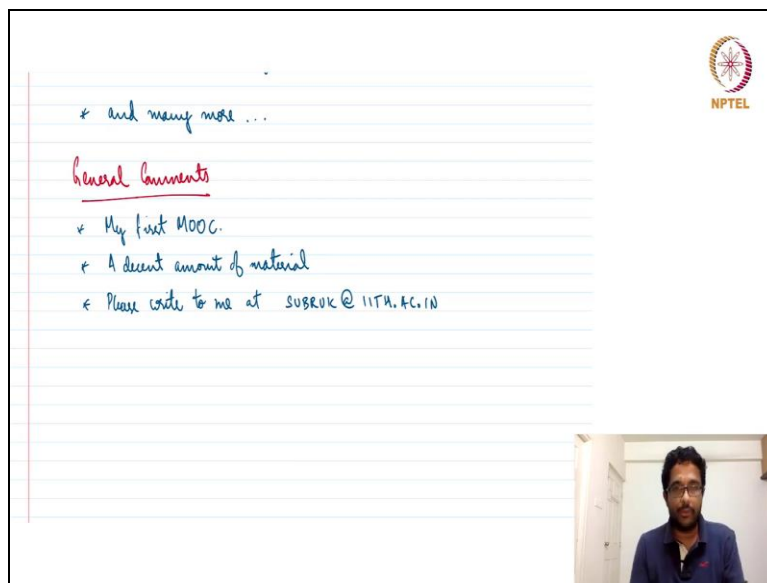 * and many more ...
NPTEL
General Comments
* My first MOOC.
* A decent amount of material
* Please write to me at SUBRUK@IITH.AC.IN